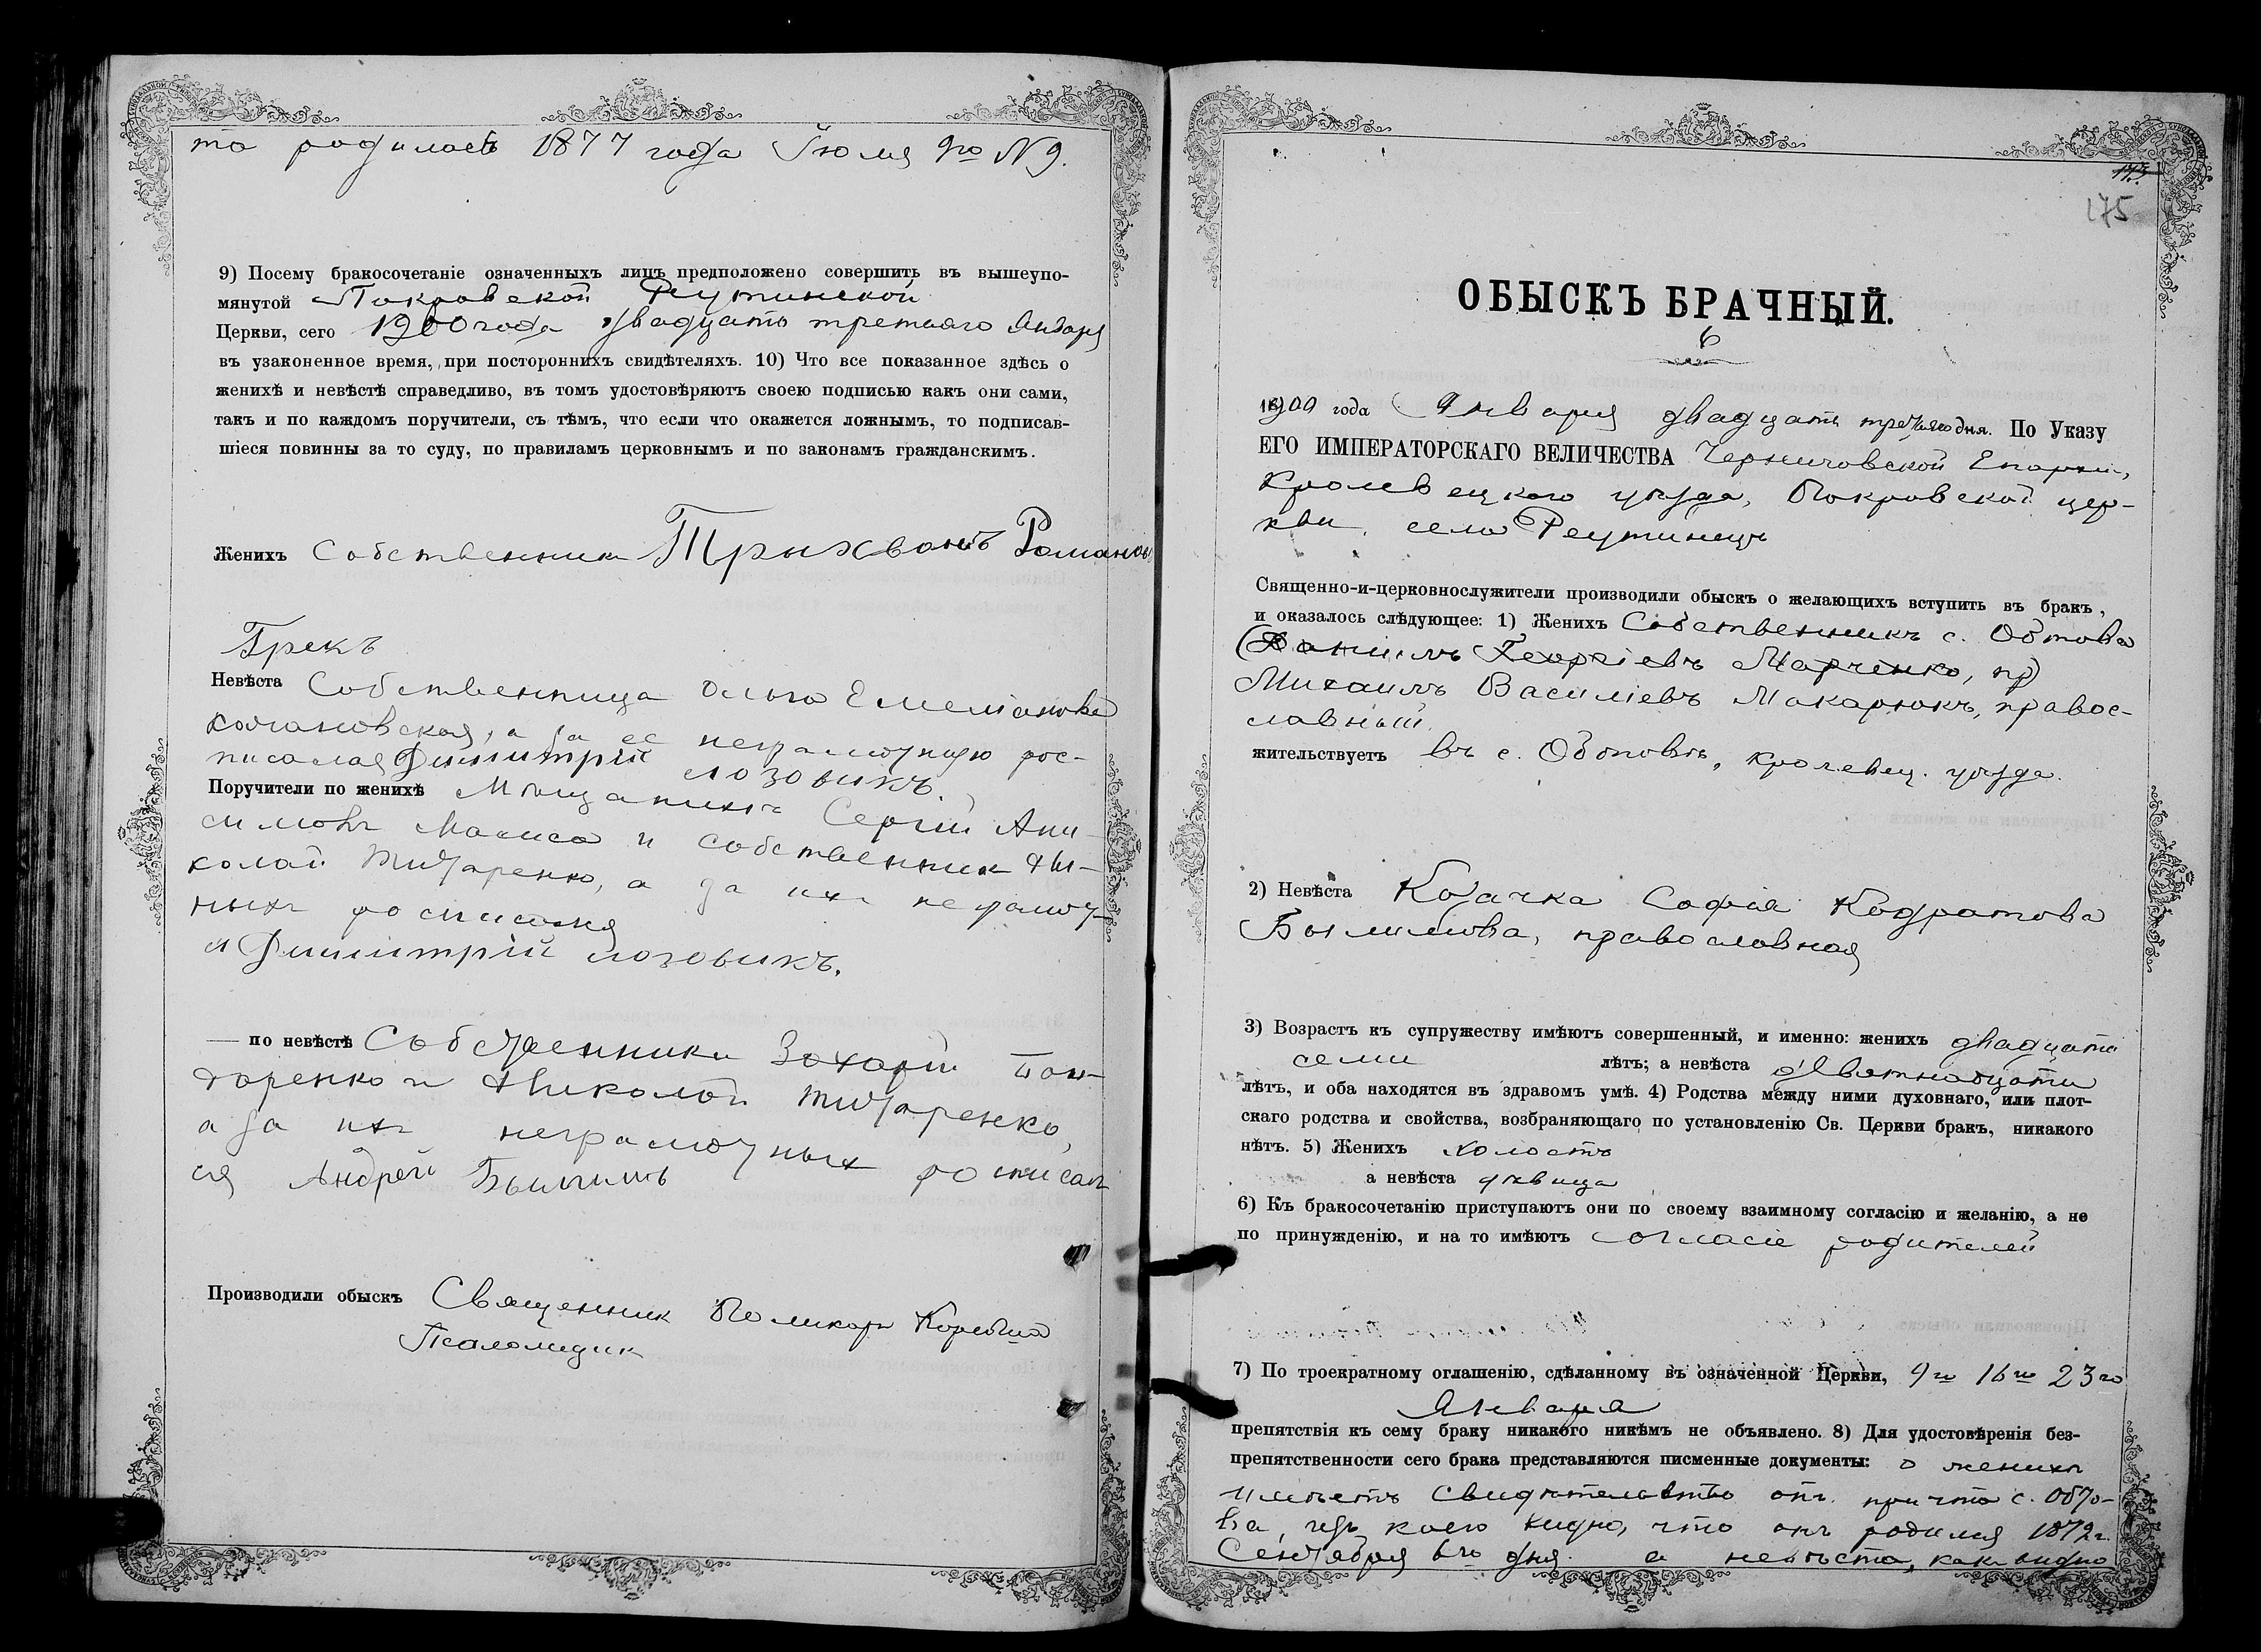 та родилась 1877 года Июля 9го N9.
9) Посему бракосочетаніе означенныхъ лицъ предположено совершить въ вышеупо-
мянутой Покровской Реутинской
Церкви, сего 1900 года двадцать третьяго Января
въ узаконенное время, при постороннихъ свидѣтеляхъ. 10) Что все показанное здѣсь о
женихѣ и невѣстѣ справедливо, въ томъ удостовѣряютъ своею подписью какъ они сами,
такъ и по каждомъ поручители, съ тѣмъ, что если что окажется ложнымъ, то подписав-
шіеся повинны за то суду, по правиламъ церковнымъ и по законамъ гражданскимъ.
Женихъ Собственникъ Трыхвонъ Романовъ
Грекъ
Невѣста Собственница Ольга Емеліанова
а за ее неграмотную рос-
писался Димитрій Лозовикъ.
Поручители по женихѣ Мѣщанинъ Сергій Ани-
симовъ и собственник Ни-
колай Титаренко, а за ихъ неграмот-
ныхъ росписался
Димитрій Лозовикъ.
— по невѣстѣ Собственники Захарій Бон-
даренко и Николай Титаренко,
а за ихъ неграмотныхъ росписал
ся Андрей Былимъ
Производили обыскъ Священник Поликарп
Псаломщик
175
ОБЫСКЪ БРАЧНЫЙ.
6
1900 года Января двадцать третьяго дня. По Указу
ЕГО ИМПЕРАТОРСКАГО ВЕЛИЧЕСТВА Черниговской Епархіи,
Кролевецкаго уѣзда, Покровской цер-
кви села Реутинецъ
Священно-и-церковнослужители производили обыскъ о желающихъ вступить въ бракъ,
и оказалось слѣдующее: 1) Женихъ Собственникъ с. Обтова
(Даніилъ Георгіевъ Марченко, пр)
Михаилъ Василіевъ Макарюкъ, правос-
лавный.
жительствуетъ въ с. Обтовѣ, Кролевец. уѣзда.
2) Невѣста Козачка Софія Кодратова
Былимова, православная
3) Возрастъ къ супружеству имѣютъ совершенный, и именно: женихъ двадцати
семи лѣтъ; а невѣста девятнадцати
лѣтъ, и оба находятся въ здравомъ умѣ. 4) Родства между ними духовнаго, или плот-
скаго родства и свойства, возбраняющаго по установленію Св. Церкви бракъ, никакого
нѣтъ. 5) Женихъ холостъ
а невѣста дѣвица
6) Къ бракосочетанію приступаютъ они по своему взаимному согласію и желанію, а не
по принужденію, и на то имѣютъ согласіе родителей
7) По троекратному оглашенію, сдѣланному въ означенной Церкви, 9го 16го 23го
Января
препятствія къ сему браку никакого никѣмъ не объявлено. 8) Для удостовѣренія без-
препятственности сего брака представляются писменные документы: о женихѣ
имѣетъ свидѣтельство отъ причта с. Обто-
ва, изъ коего видно, что онъ родился 1872г.
Сентября 6го дня. а невѣста, какъ видно